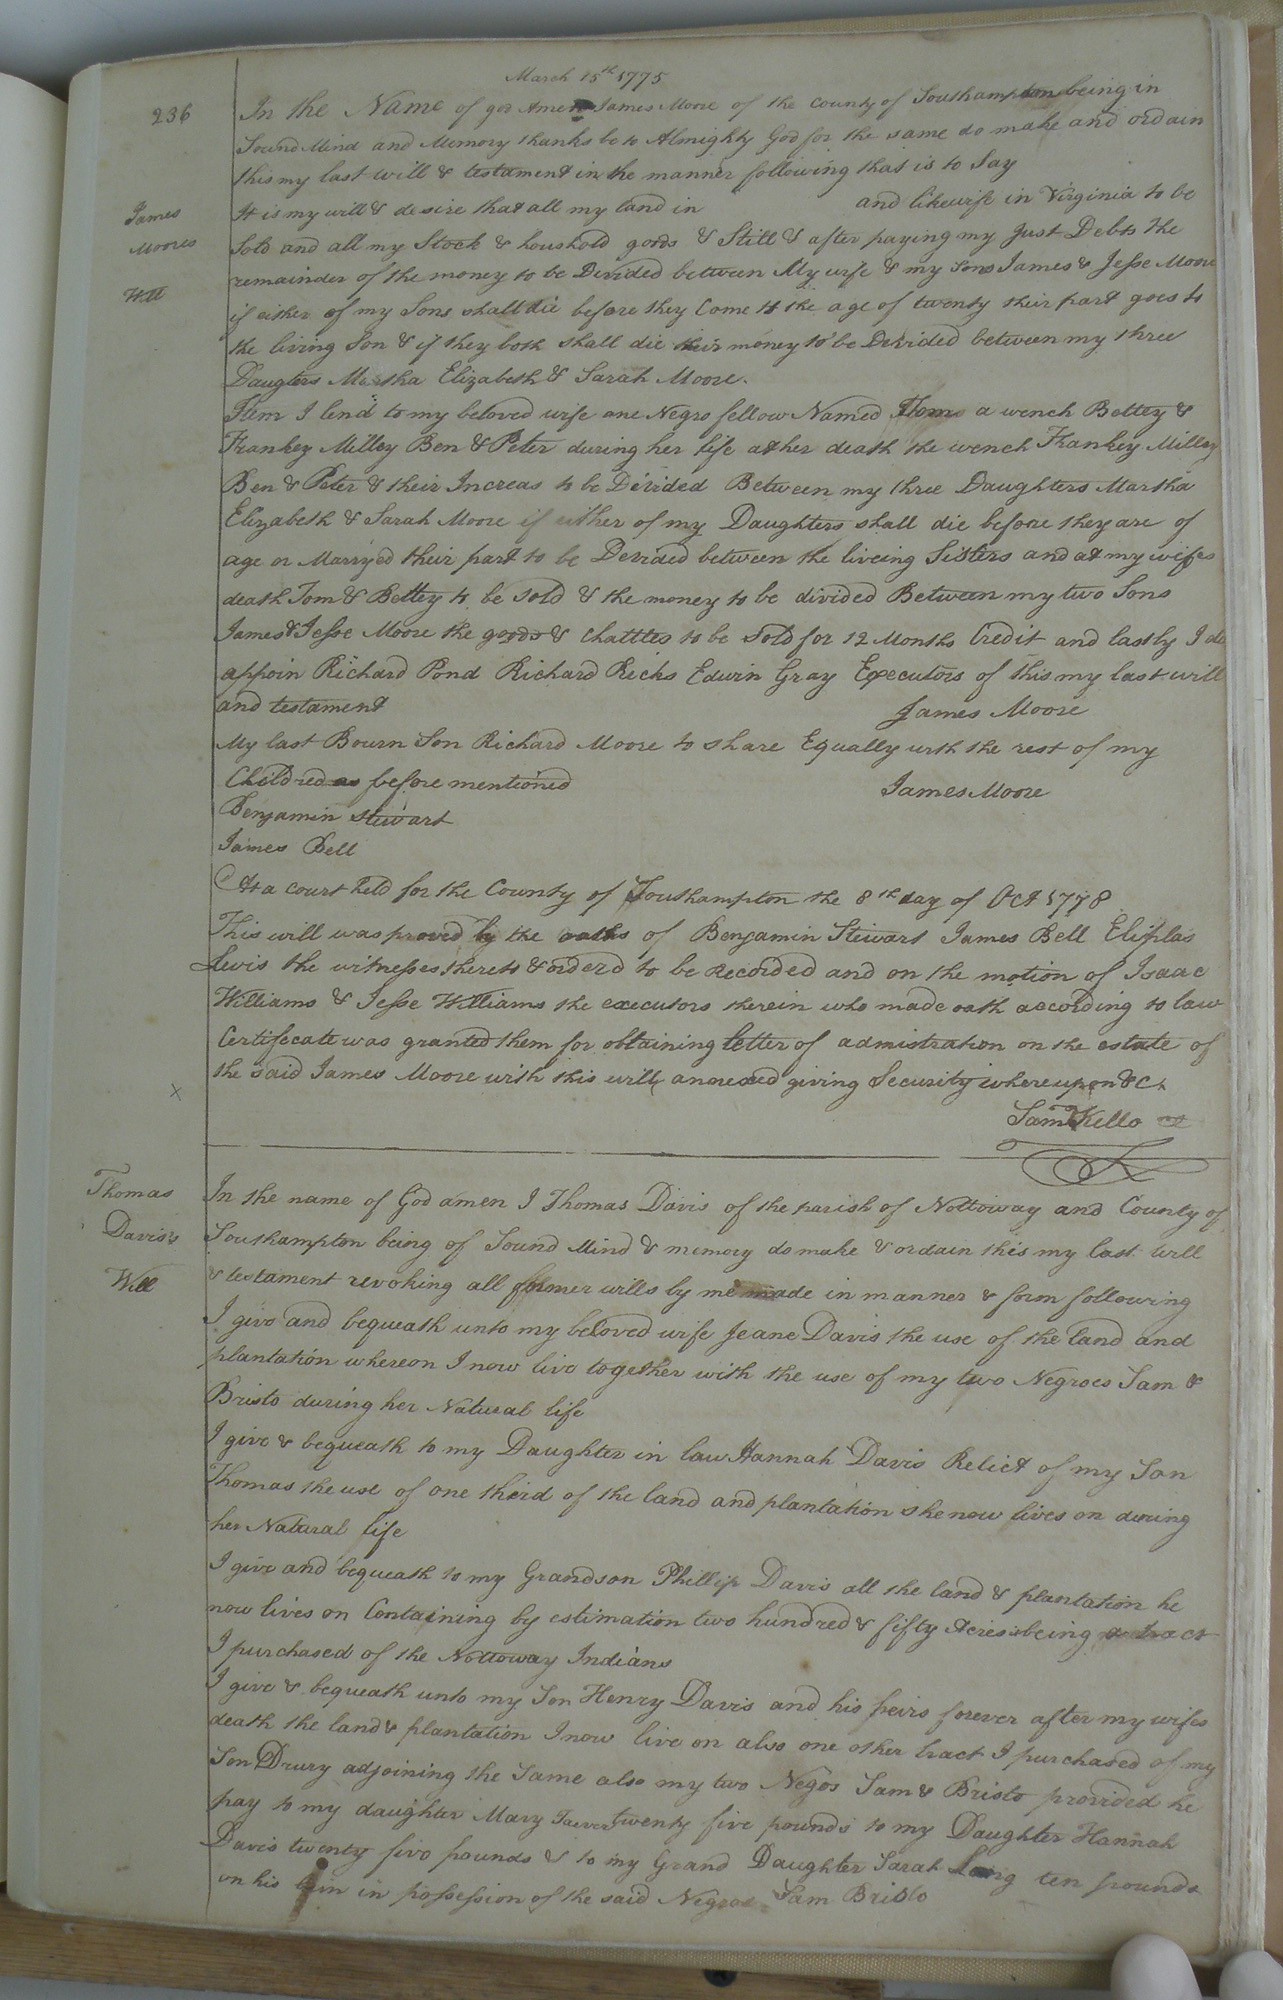 March 15th 1775
236
In the Name of god Amen James Moore of the County of Southampton being in
Sound Mind and Memory thanks be to Almighty God for the same do make and ordain
this my last will & testament in the manner following that is to Say
James
Moores
Will
It is my will & desire that all my land in and likewise in Virginia to be
Sold and all my Stock & houshold goods & Still & after paying my Just Debts the
remainder of the money to be Devided between My wife & my Sons James & Jesse Moore
if either of my Sons shall die before they Come to the age of twenty their part goes to
the living Son & if they both shall die their money to be Devided between my three
Daugters Martha Elizabeth & Sarah Moore.
Item I lend to my beloved wife one Negro fellow Named Tom a wench Bettey &
Frankey Milley Ben & Peter during her life at her death the wench Frankey Milley
Ben & Peter & their Increas to be Devided Between my three Daughters Martha
Elizabeth & Sarah Moore if either of my Daughters shall die before they are of
age or Marryed their part to be Devided between the liveing Sisters and at my wifes
death Tom & Bettey to be sold & the money to be divided Between my two Sons
James & Jesse Moore the goods & chattles to be Sold for 12 Months Credit and lastly I do
appoin Richard Pond Richard Ricks Edwin Gray Executors of this my last will
and testament
James Moore
My last Bourn Son Richard Moore to share Equally with the rest of my
Childred as before mentioned
James Moore
Benjamin Stewart
James Bell
At a court held for the County of Southampton the 8th day of Oct 1778
This will was proved by the oaths of Benjamin Stewart James Bell Eliplas
Lewis the witnesses thereto & orderd to be Recorded and on the motion of Isaac
Williams & Jesse Williams the executors therein who made oath according to law
Certifecate was granted them for obtaining letter of admistration on the estate of
the said James Moore with this will annexed giving Security whereupon &c
x
Sam Kello
Thomas
Davis's
Will
In the name of God amen I Thomas Davis of the parish of Nottoway and County of
Southampton being of Sound Mind & memory do make & ordain this my last will
& testament revoking all former wills by me made in manner & form following
I give and bequeath unto my beloved wife Jeane Davis the use of the land and
plantation whereon I now live together with the use of my two Negroes Sam &
Bristo during her Natural life
I give & bequeath to my Daughter in law Hannah Davis Relict of my Son
Thomas the use of one third of the land and plantation she now lives on during
her Natural life
I give and bequeath to my Grandson Phillip Davis all the land & plantation he
now lives on Containing by estimation two hundred & fifty Acres being a tract
I purchased of the Nottoway Indians
I give & bequeath unto my Son Henry Davis and his heirs forever after my wifes
death the land & plantation I now live on also one other tract I purchased of my
Son Drury adjoining the Same also my two Negos Sam & Bristo provided he
pay to my daughter Mary twenty five pounds to my Daughter Hannah
Davis twenty five pounds & to my Grand Daughter Sarah Long ten pounds
on his in possession of the said Negros Sam Bristo